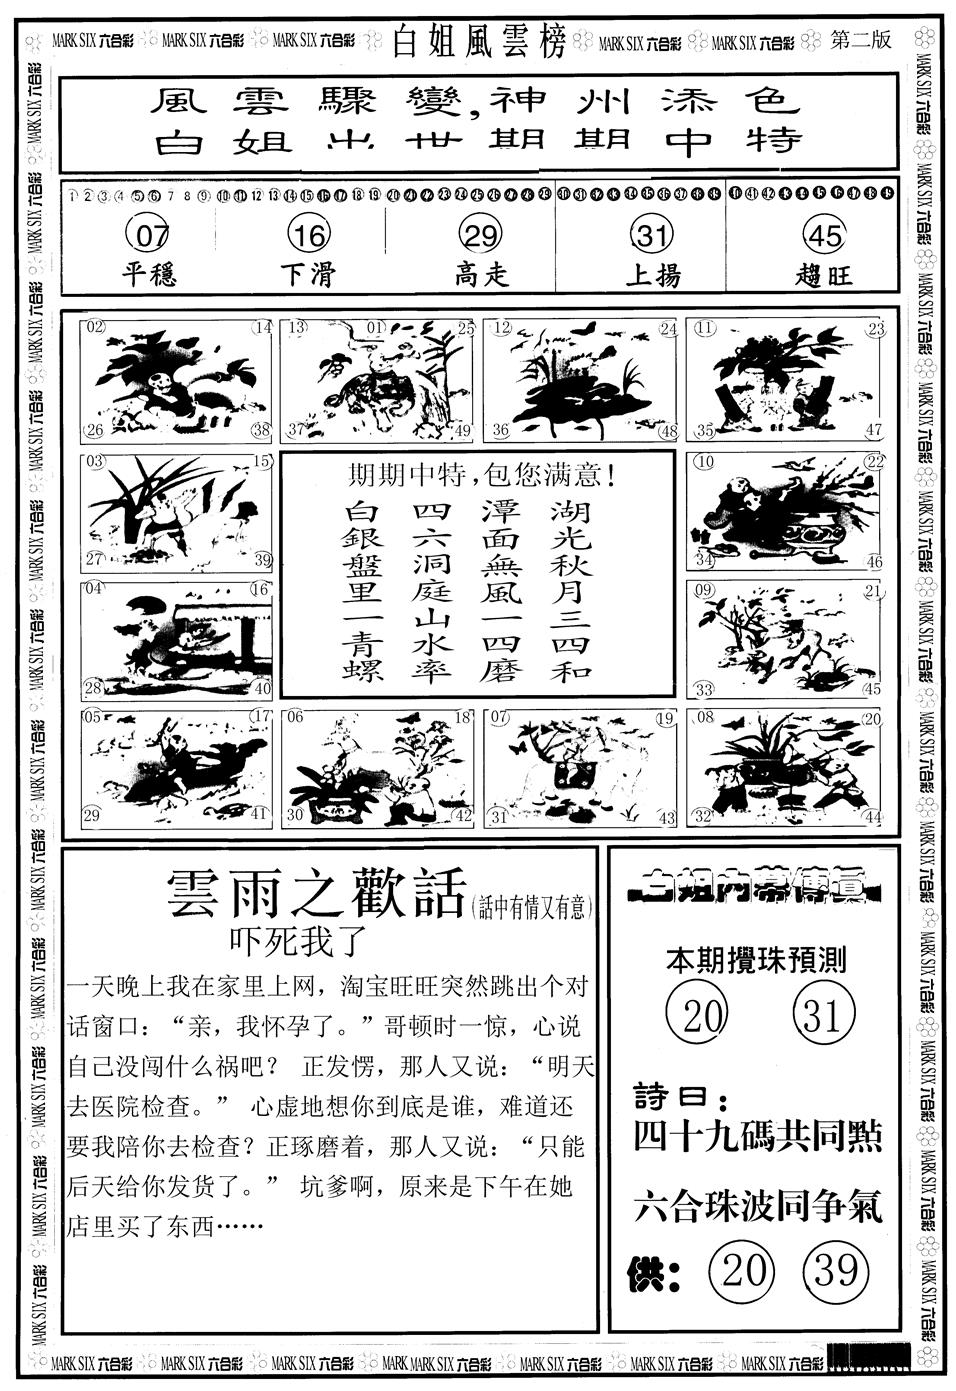 MARK SIX 六合彩 MARK SIX 六合彩 MARK SIX 六合彩 白姐風雲榜 MARK SIX 六合彩 MARK SIX 六合彩 第二版
風雲驟變,神州添色
白姐出世期期中特
1 2 3 4 5 6 7 8 9 10 11 12 13 14 15 16 17 18 19 20 21 22 23 24 25 26 27 28 29 30 31 32 33 34 35 36 37 38 39 40 41 42 43 44 45 46 47 48 49
07 16 29 31 45
平穩 下滑 高走 上揚 趨旺
02 14 13 01 25 12 24 11 23
26 38 37 49 36 48 35 47
03 15 10 22
27 39 34 46
04 16 09 21
28 40 33 45
05 17 06 18 07 19 08 20
29 41 30 42 31 43 32 44
期期中特,包您满意!
湖光秋月三四和
潭面無風一四磨
四六洞庭山水率
白銀盤里一青螺
雲雨之歡話(話中有情又有意)
吓死我了
一天晚上我在家里上网，淘宝旺旺突然跳出个对
话窗口：“亲，我怀孕了。”哥顿时一惊，心说
自己没闯什么祸吧？ 正发愣，那人又说：“明天
去医院检查。” 心虚地想你到底是谁，难道还
要我陪你去检查？正琢磨着，那人又说：“只能
后天给你发货了。” 坑爹啊，原来是下午在她
店里买了东西……
白姐内幕傳真
本期攪珠預測
20 31
詩曰：
四十九碼共同點
六合珠波同争氣
供： 20 39
MARK SIX 六合彩 MARK SIX 六合彩 MARK SIX 六合彩 MARK MARK SIX 六合彩 MARK SIX 六合彩 MARK SIX 六合彩 MARK SIX 六合彩